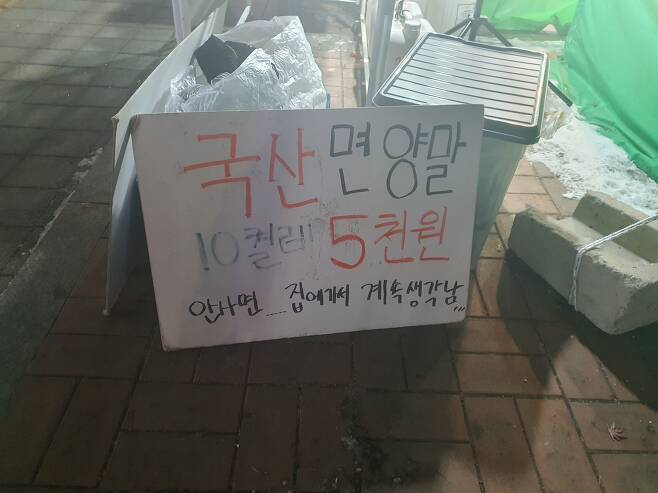 국산 면양말
10켤레 5천원
안사면.... 집에가서 계속생각남...